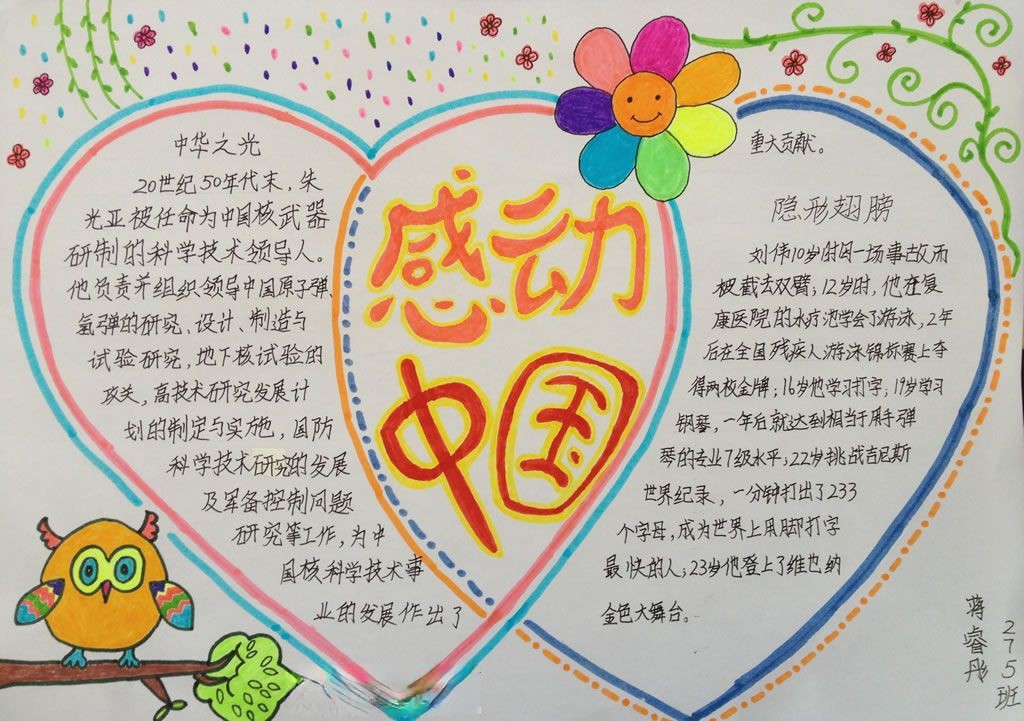 感动
中国
中华之光
20世纪50年代末，朱
光亚被任命为中国核武器
研制的科学技术领导人。
他负责并组织领导中国原子弹、
氢弹的研究、设计、制造与
试验研究，地下核试验的
攻关，高技术研究发展计
划的制定与实施，国防
科学技术研究的发展
及军备控制问题
研究等工作，为中
国核科学技术事
业的发展作出了
重大贡献。
隐形翅膀
刘伟10岁时因一场事故而
被截去双臂；12岁时，他在复
康医院的水疗池学会了游泳，2年
后在全国残疾人游泳锦标赛上夺
得两枚金牌；16岁他学习打字；19岁学习
钢琴，一年后就达到相当于用手弹
琴的专业7级水平；22岁挑战吉尼斯
世界纪录，一分钟打出了233
个字母，成为世界上用脚打字
最快的人；23岁他登上了维也纳
金色大舞台。
蒋睿彤
275班